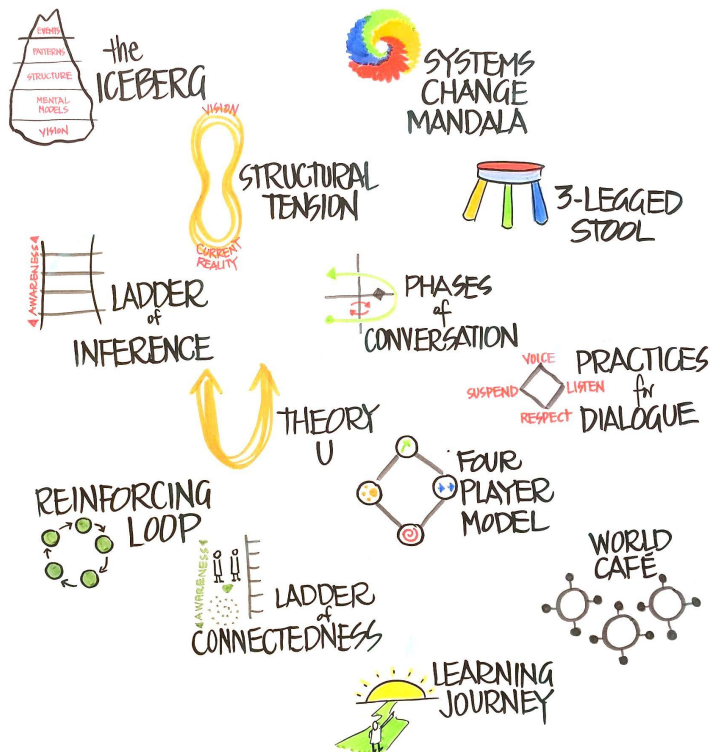 EVENTS
PATTERNS
STRUCTURE
MENTAL
MODELS
VISION
the
ICEBERG
SYSTEMS
CHANGE
MANDALA
VISION
CURRENT
REALITY
STRUCTURAL
TENSION
3-LEGGED
STOOL
AWARENESS
LADDER
of
INFERENCE
PHASES
of
CONVERSATION
VOICE
SUSPEND
LISTEN
RESPECT
PRACTICES
for
DIALOGUE
THEORY
U
FOUR
PLAYER
MODEL
REINFORCING
LOOP
AWARENESS
LADDER
of
CONNECTEDNESS
WORLD
CAFÉ
LEARNING
JOURNEY